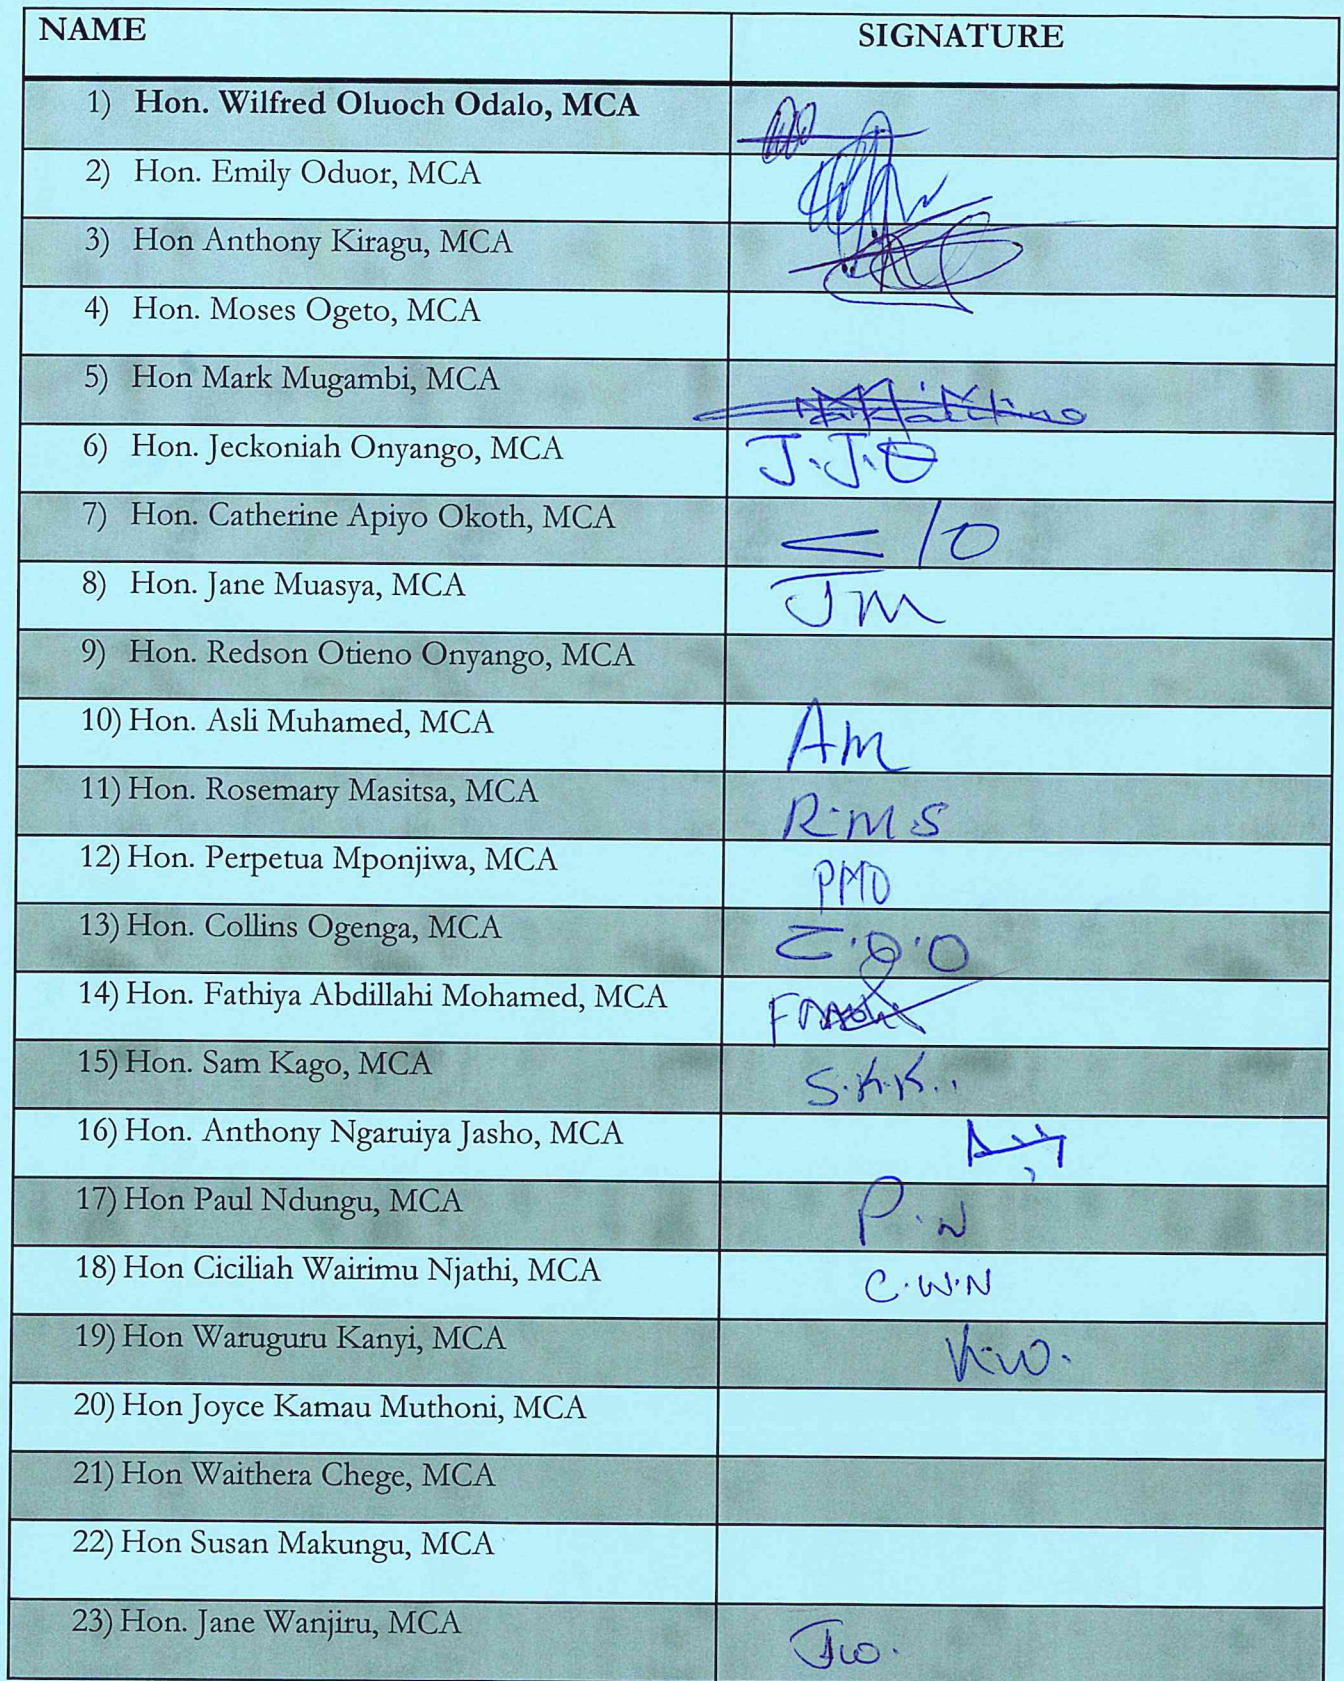 NAME SIGNATURE
1) Hon. Wilfred Oluoch Odalo, MCA
2) Hon. Emily Oduor, MCA
3) Hon Anthony Kiragu, MCA
4) Hon. Moses Ogeto, MCA
5) Hon Mark Mugambi, MCA
6) Hon. Jeckoniah Onyango, MCA J.J.O
7) Hon. Catherine Apiyo Okoth, MCA
8) Hon. Jane Muasya, MCA Jm
9) Hon. Redson Otieno Onyango, MCA
10) Hon. Asli Muhamed, MCA Am
11) Hon. Rosemary Masitsa, MCA R.M.S
12) Hon. Perpetua Mponjiwa, MCA PMO
13) Hon. Collins Ogenga, MCA C.O.O
14) Hon. Fathiya Abdillahi Mohamed, MCA
15) Hon. Sam Kago, MCA S.K.K..
16) Hon. Anthony Ngaruiya Jasho, MCA
17) Hon Paul Ndungu, MCA P.N
18) Hon Ciciliah Wairimu Njathi, MCA C.W.N
19) Hon Waruguru Kanyi, MCA K.W.
20) Hon Joyce Kamau Muthoni, MCA
21) Hon Waithera Chege, MCA
22) Hon Susan Makungu, MCA
23) Hon. Jane Wanjiru, MCA Jw.